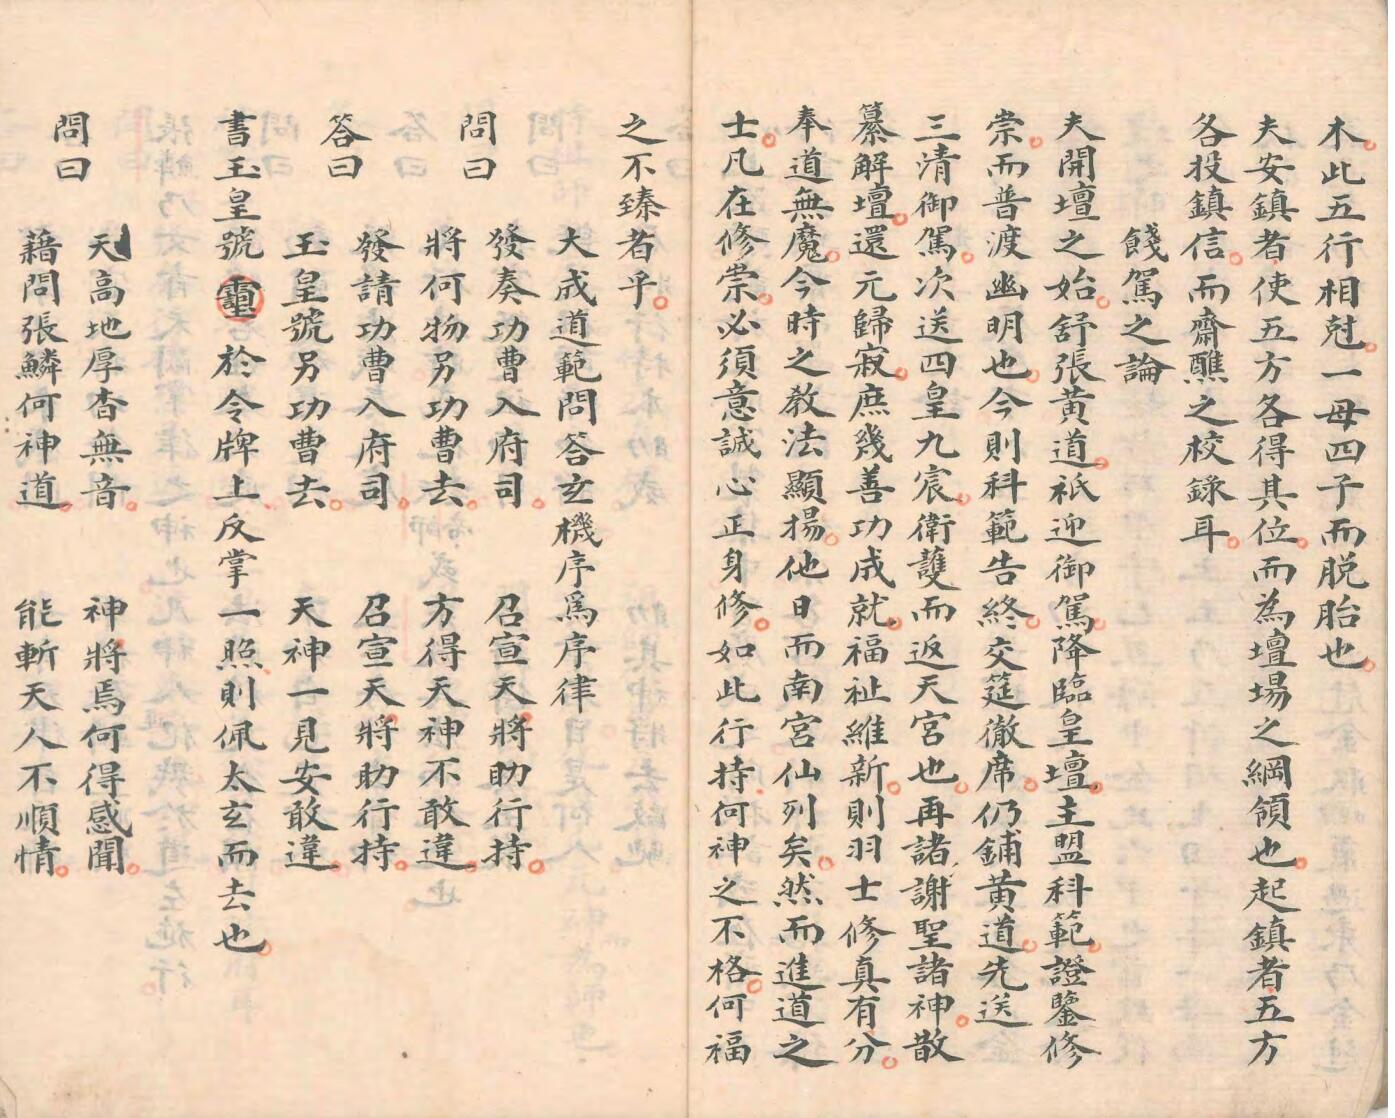 木。此五行相尅。一母四子而脱胎也。
夫安鎮者使五方各得其位。而為壇場之綱領也。起鎮者五方
各投鎮信。而齋醮之校錄耳。
餞駕之論
夫開壇之始。舒張黃道。祇迎御駕。降臨皇壇。主盟科範。證鑒修
崇。而普渡幽明也。今則科範告終。交筵徹席。仍鋪黃道。先送
三清御駕。次送四皇九宸。衛護而返天宮也。再諸謝聖諸神。散
纂解壇。還元歸寂。庶幾善功成就。福祉維新。則羽士修真有分。
奉道無魔。今時之教法顯揚。他日而南宮仙列矣。然而進道之
士。凡在修崇。必須意誠心正身修。如此行持。何神之不格。何福
之不臻者乎。
大成道範問答玄機序為序律
問曰 發奏功曹入府司。 召宣天將助行持。
將何物另功曹去。 方得天神不敢違。
答曰 發請功曹入府司。 召宣天將助行持。
玉皇號另功曹去。 天神一見安敢違。
書玉皇號 於令牌上反掌一照。則佩太玄而去也。
問曰 天高地厚杳無音。 神將焉何得感聞。
藉問張鱗何神道。 能斬天人不順情。